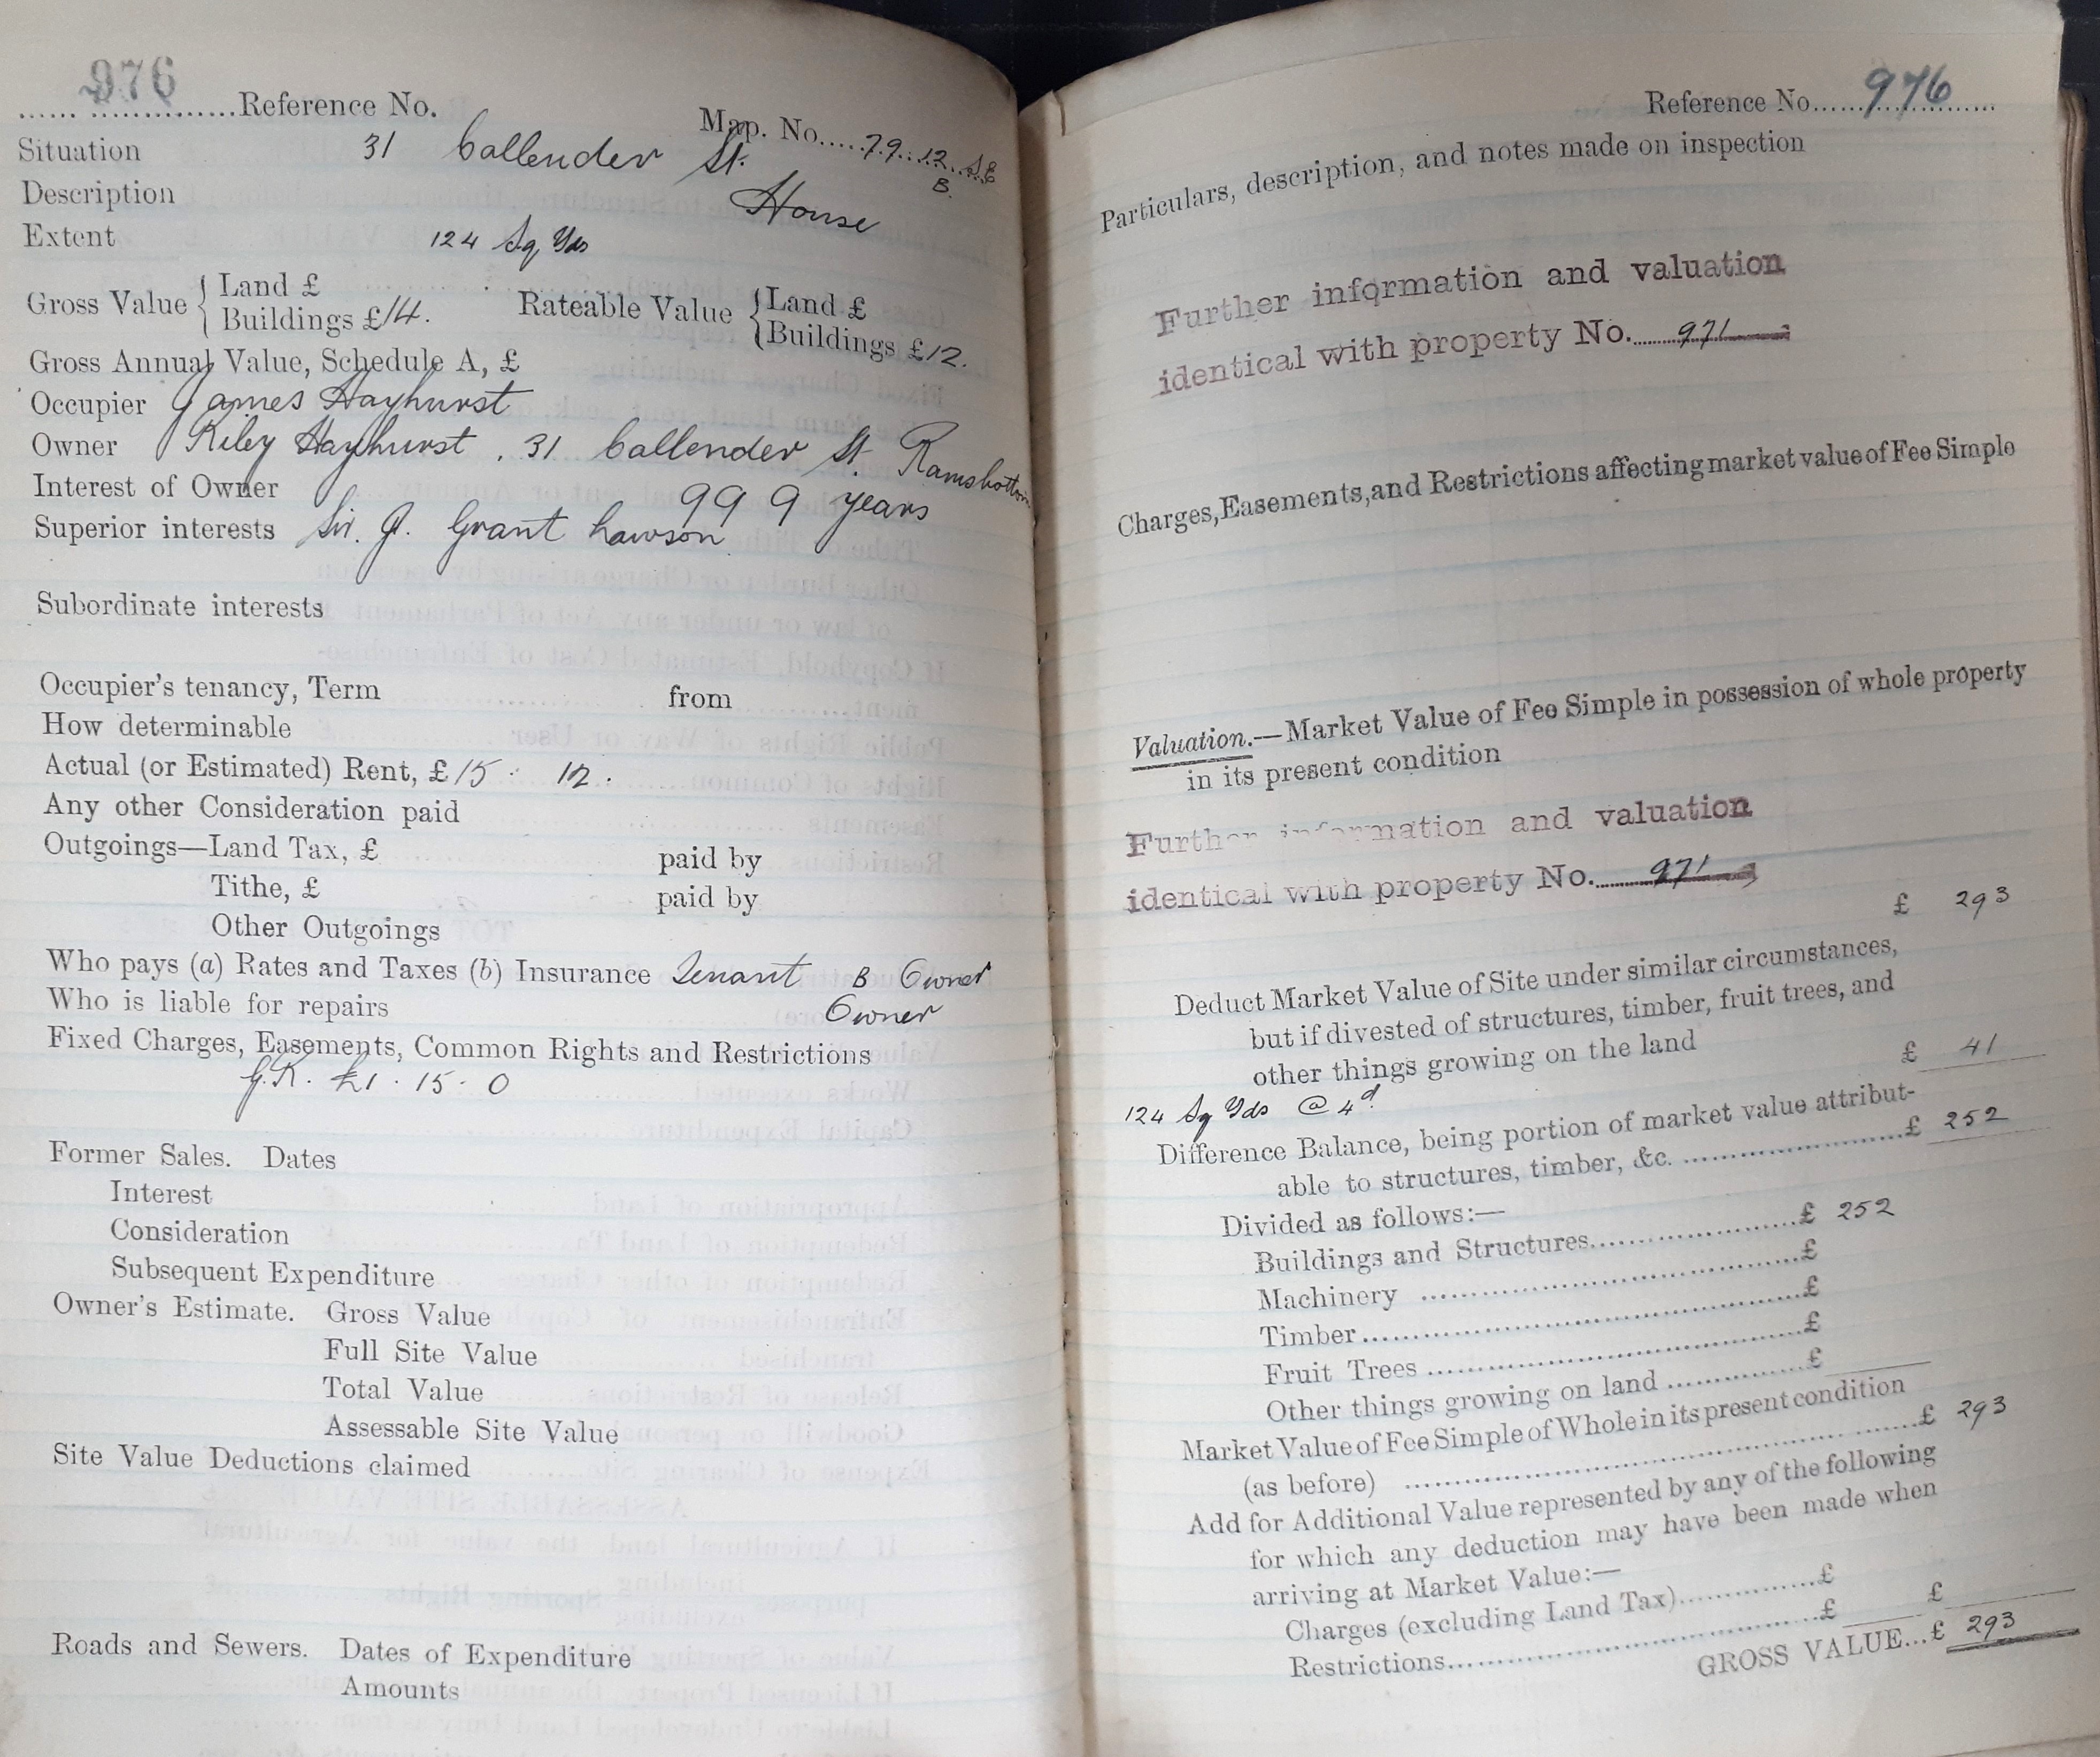 976 Reference No.
Map. No. 79.12.SE
B.
Situation 31 Callender St.
Description House
Extent 124 Sq Yds
Gross Value { Land £
Buildings £14.
Rateable Value { Land £
Buildings £12.
Gross Annual Value, Schedule A, £
Occupier James Hayhurst
Owner Riley Hayhurst. 31 Callender St. Ramsbottom
Interest of Owner 999 years
Superior interests Sir. J. Grant Lawson
Subordinate interests
Occupier's tenancy, Term from
How determinable
Actual (or Estimated) Rent, £15 : 12.
Any other Consideration paid
Outgoings—Land Tax, £ paid by
Tithe, £ paid by
Other Outgoings
Who pays (a) Rates and Taxes (b) Insurance Tenant B Owner
Who is liable for repairs Owner
Fixed Charges, Easements, Common Rights and Restrictions
G.R. £1.15.0
Former Sales. Dates
Interest
Consideration
Subsequent Expenditure
Owner's Estimate. Gross Value
Full Site Value
Total Value
Assessable Site Value
Site Value Deductions claimed
Roads and Sewers. Dates of Expenditure
Amounts
Reference No. 976
Particulars, description, and notes made on inspection
Further information and valuation
identical with property No. 971
Charges, Easements, and Restrictions affecting market value of Fee Simple
Valuation.—Market Value of Fee Simple in possession of whole property
in its present condition
Further information and valuation
identical with property No. 971
£ 293
Deduct Market Value of Site under similar circumstances,
but if divested of structures, timber, fruit trees, and
other things growing on the land £ 41
124 Sq Yds @ 4d.
Difference Balance, being portion of market value attribut-
able to structures, timber, &c. £ 252
Divided as follows:—
Buildings and Structures £ 252
Machinery £
Timber £
Fruit Trees £
Other things growing on land £
Market Value of Fee Simple of Whole in its present condition
(as before) £ 293
Add for Additional Value represented by any of the following
for which any deduction may have been made when
arriving at Market Value:—
Charges (excluding Land Tax) £
Restrictions £ £
GROSS VALUE...£ 293